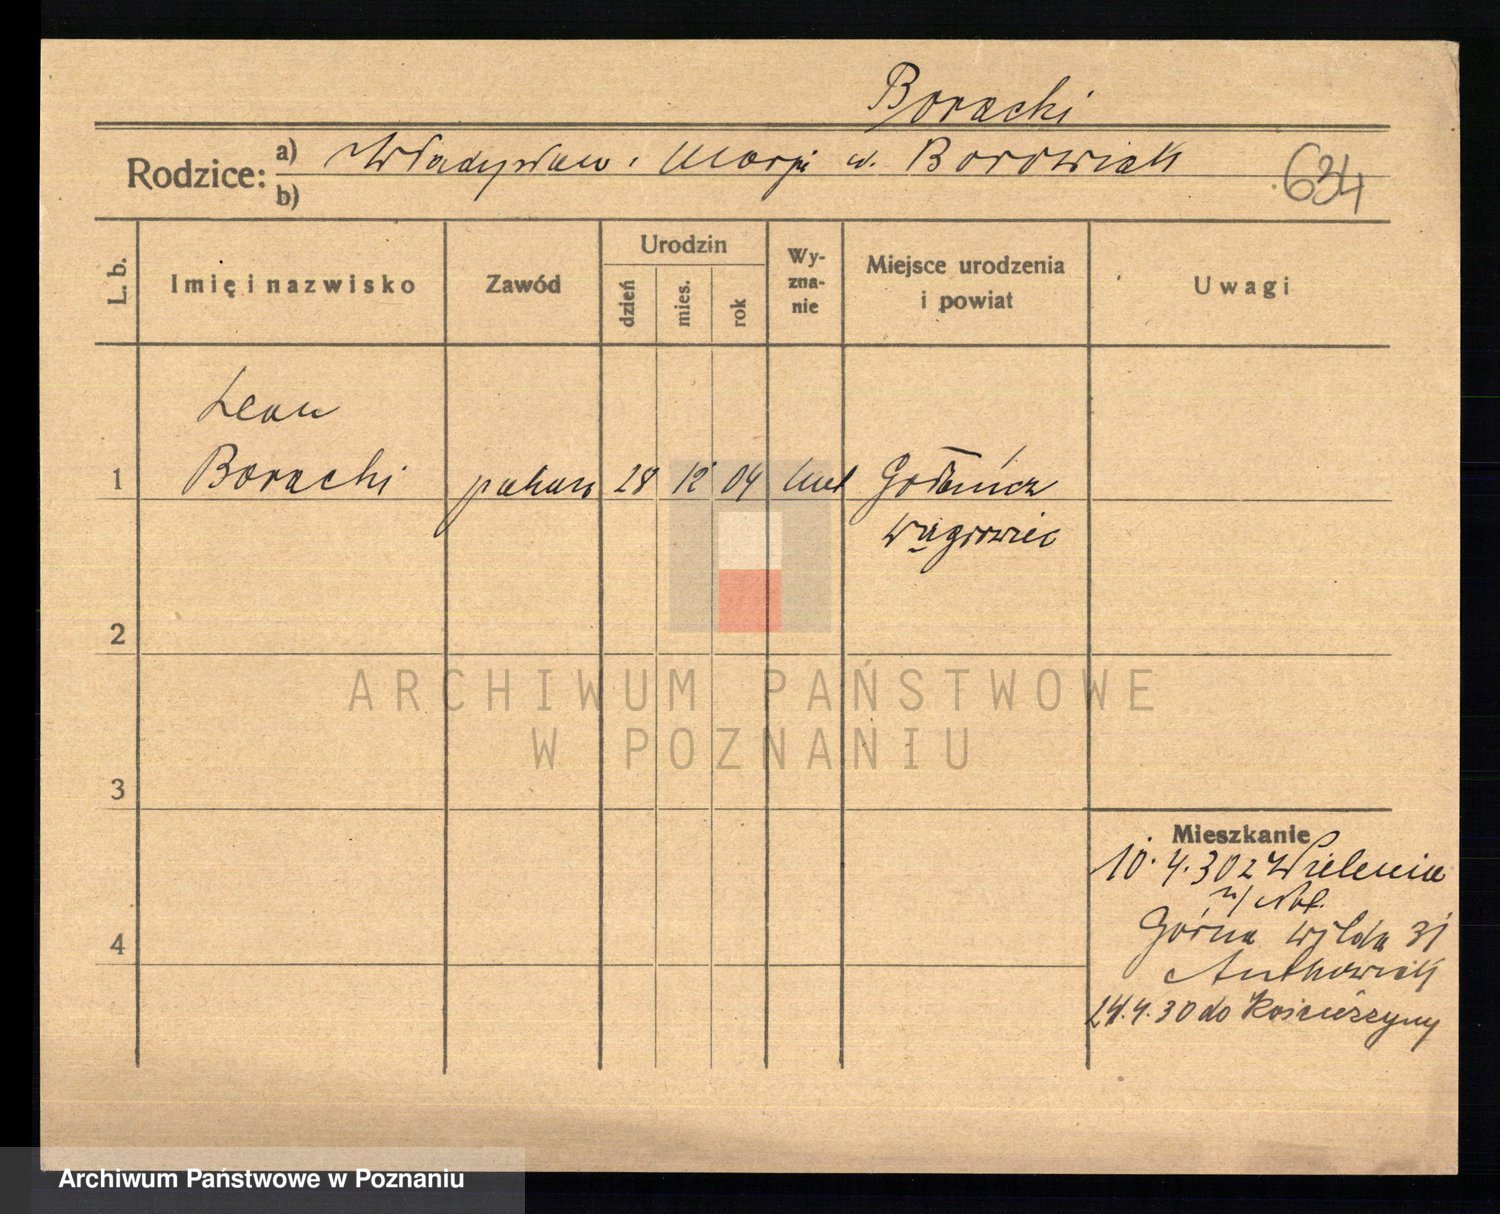 Boracki
Rodzice: a) Władysław i Marja u. Borowiak
b)
634
L. b.
Imię i nazwisko
Zawód
Urodzin
dzień
mies.
rok
Wy-
zna-
nie
Miejsce urodzenia
i powiat
Uwagi
Leon
1 Boracki 28 12 04 Gołańcz
Wągrowiec
2
3
4
ARCHIWUM PAŃSTWOWE
W POZNANIU
Mieszkanie
10.4.30 z Wielenia
n/Not.
Górna Wilda 31
Antkowiak
24.4.30 do Kościerzyny
Archiwum Państwowe w Poznaniu